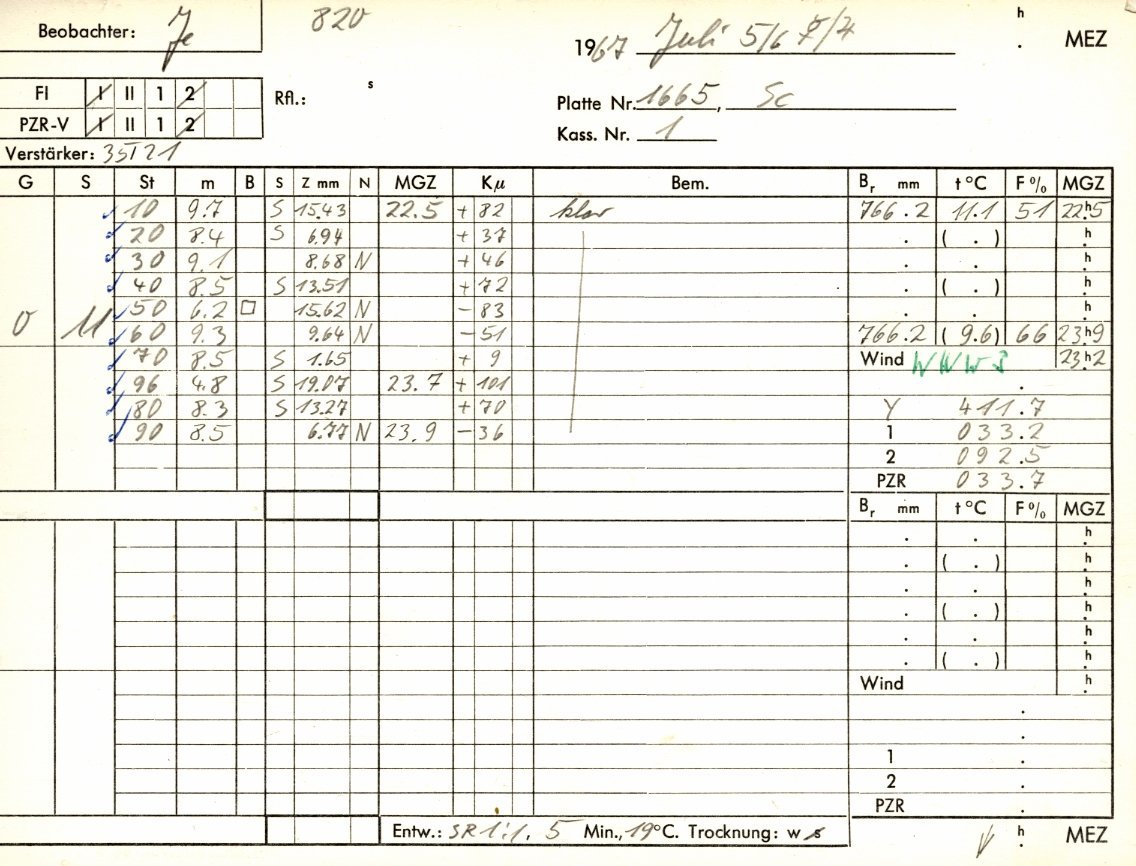 Beobachter: Je 820 h
1967 Juli 5/6 . MEZ
FI I II 1 2 Rfl.: s Platte Nr. 1665, Sc
PZR-V I II 1 2 Kass. Nr. 1
Verstärker: 35T21
G S St m B S Z mm N MGZ Kμ Bem. Br mm t °C F % MGZ
10 9.7 S 15.43 22.5 + 82 klar 766.2 11.1 51 22h5
20 8.4 S 6.94 + 37 . ( . ) h
30 9.1 8.68 N + 46 . . h
40 8.5 S 13.51 + 72 . ( . ) h
0 11 50 6.2 □ 15.62 N - 83 . . h
60 9.3 9.64 N - 51 766.2 ( 9.6) 66 23h9
70 8.5 S 1.65 + 9 Wind WWWS 23h2
96 4.8 S 19.07 23.7 + 101 .
80 8.3 S 13.27 + 70 Y 411.7
90 8.5 6.77 N 23.9 - 36 1 033.2
2 092.5
PZR 033.7
Br mm t °C F % MGZ
. . h
. ( . ) h
. . h
. ( . ) h
. . h
. ( . ) h
Wind h
.
.
1 .
2 .
PZR .
Entw.: SR 1:1, 5 Min., 19°C. Trocknung: w s h . MEZ